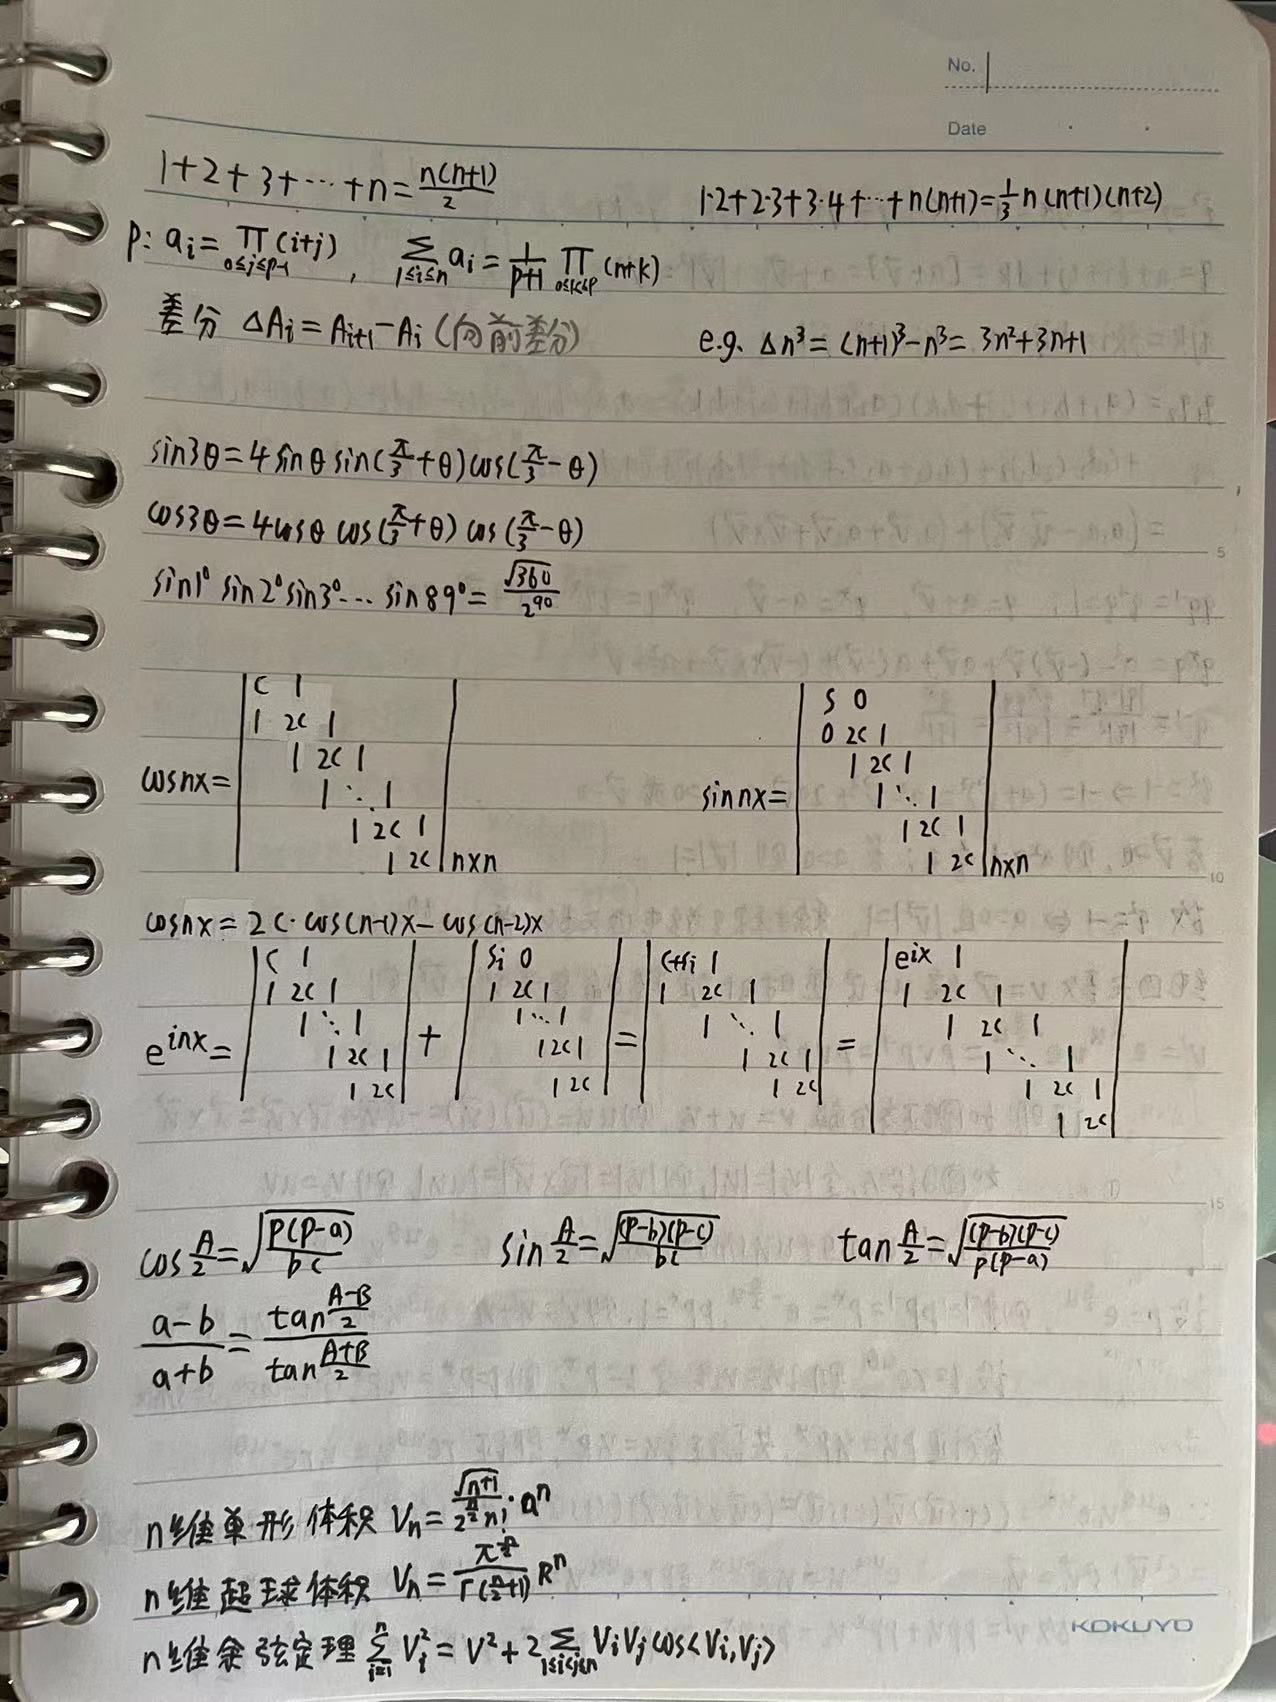 No.
Date
1+2+3+⋯+n=n(n+1)/2    1·2+2·3+3·4+⋯+n(n+1)=1/3 n(n+1)(n+2)
p: aᵢ=∏_{0≤j≤p-1}(i+j), ∑_{1≤i≤n}aᵢ=1/(p+1) ∏_{0≤k≤p}(n+k)
差分 ΔAᵢ=Aᵢ₊₁-Aᵢ(向前差分)    e.g. Δn³=(n+1)³-n³=3n²+3n+1
sin3θ=4sinθ sin(π/3+θ)cos(π/3-θ)
cos3θ=4cosθ cos(π/3+θ) cos(π/3-θ)
5
sin1° sin2° sin3°⋯ sin89°=√360/2⁹⁰
cosnx= | C 1
1 2C 1
1 2C 1
1 ⋱ 1
1 2C 1
1 2C | n×n
sin nx= | S 0
0 2C 1
1 2C 1
1 ⋱ 1
1 2C 1
1 2C | n×n
10
cosnx=2C·cos(n-1)x-cos(n-2)x
e^{inx}= | C 1
1 2C 1
1 ⋱ 1
1 2C 1
1 2C |
+ | Si 0
1 2C 1
1 ⋱ 1
1 2C 1
1 2C |
= | C+Si 1
1 2C 1
1 ⋱ 1
1 2C 1
1 2C |
= | e^{ix} 1
1 2C 1
1 2C 1
1 ⋱ 1
1 2C 1
1 2C |
15
cos A/2=√(p(p-a)/bc)    sin A/2=√((p-b)(p-c)/bc)    tan A/2=√((p-b)(p-c)/p(p-a))
(a-b)/(a+b)=tan((A-B)/2)/tan((A+B)/2)
n维单形体积 Vₙ=√(n+1)/(2^{n/2} n!)·aⁿ
n维超球体积 Vₙ=π^{n/2}/Γ(n/2+1) Rⁿ
KOKUYO
n维余弦定理 ∑_{i=1}^{n}Vᵢ²=V²+2∑_{1≤i<j≤n}VᵢVⱼcos<Vᵢ,Vⱼ>